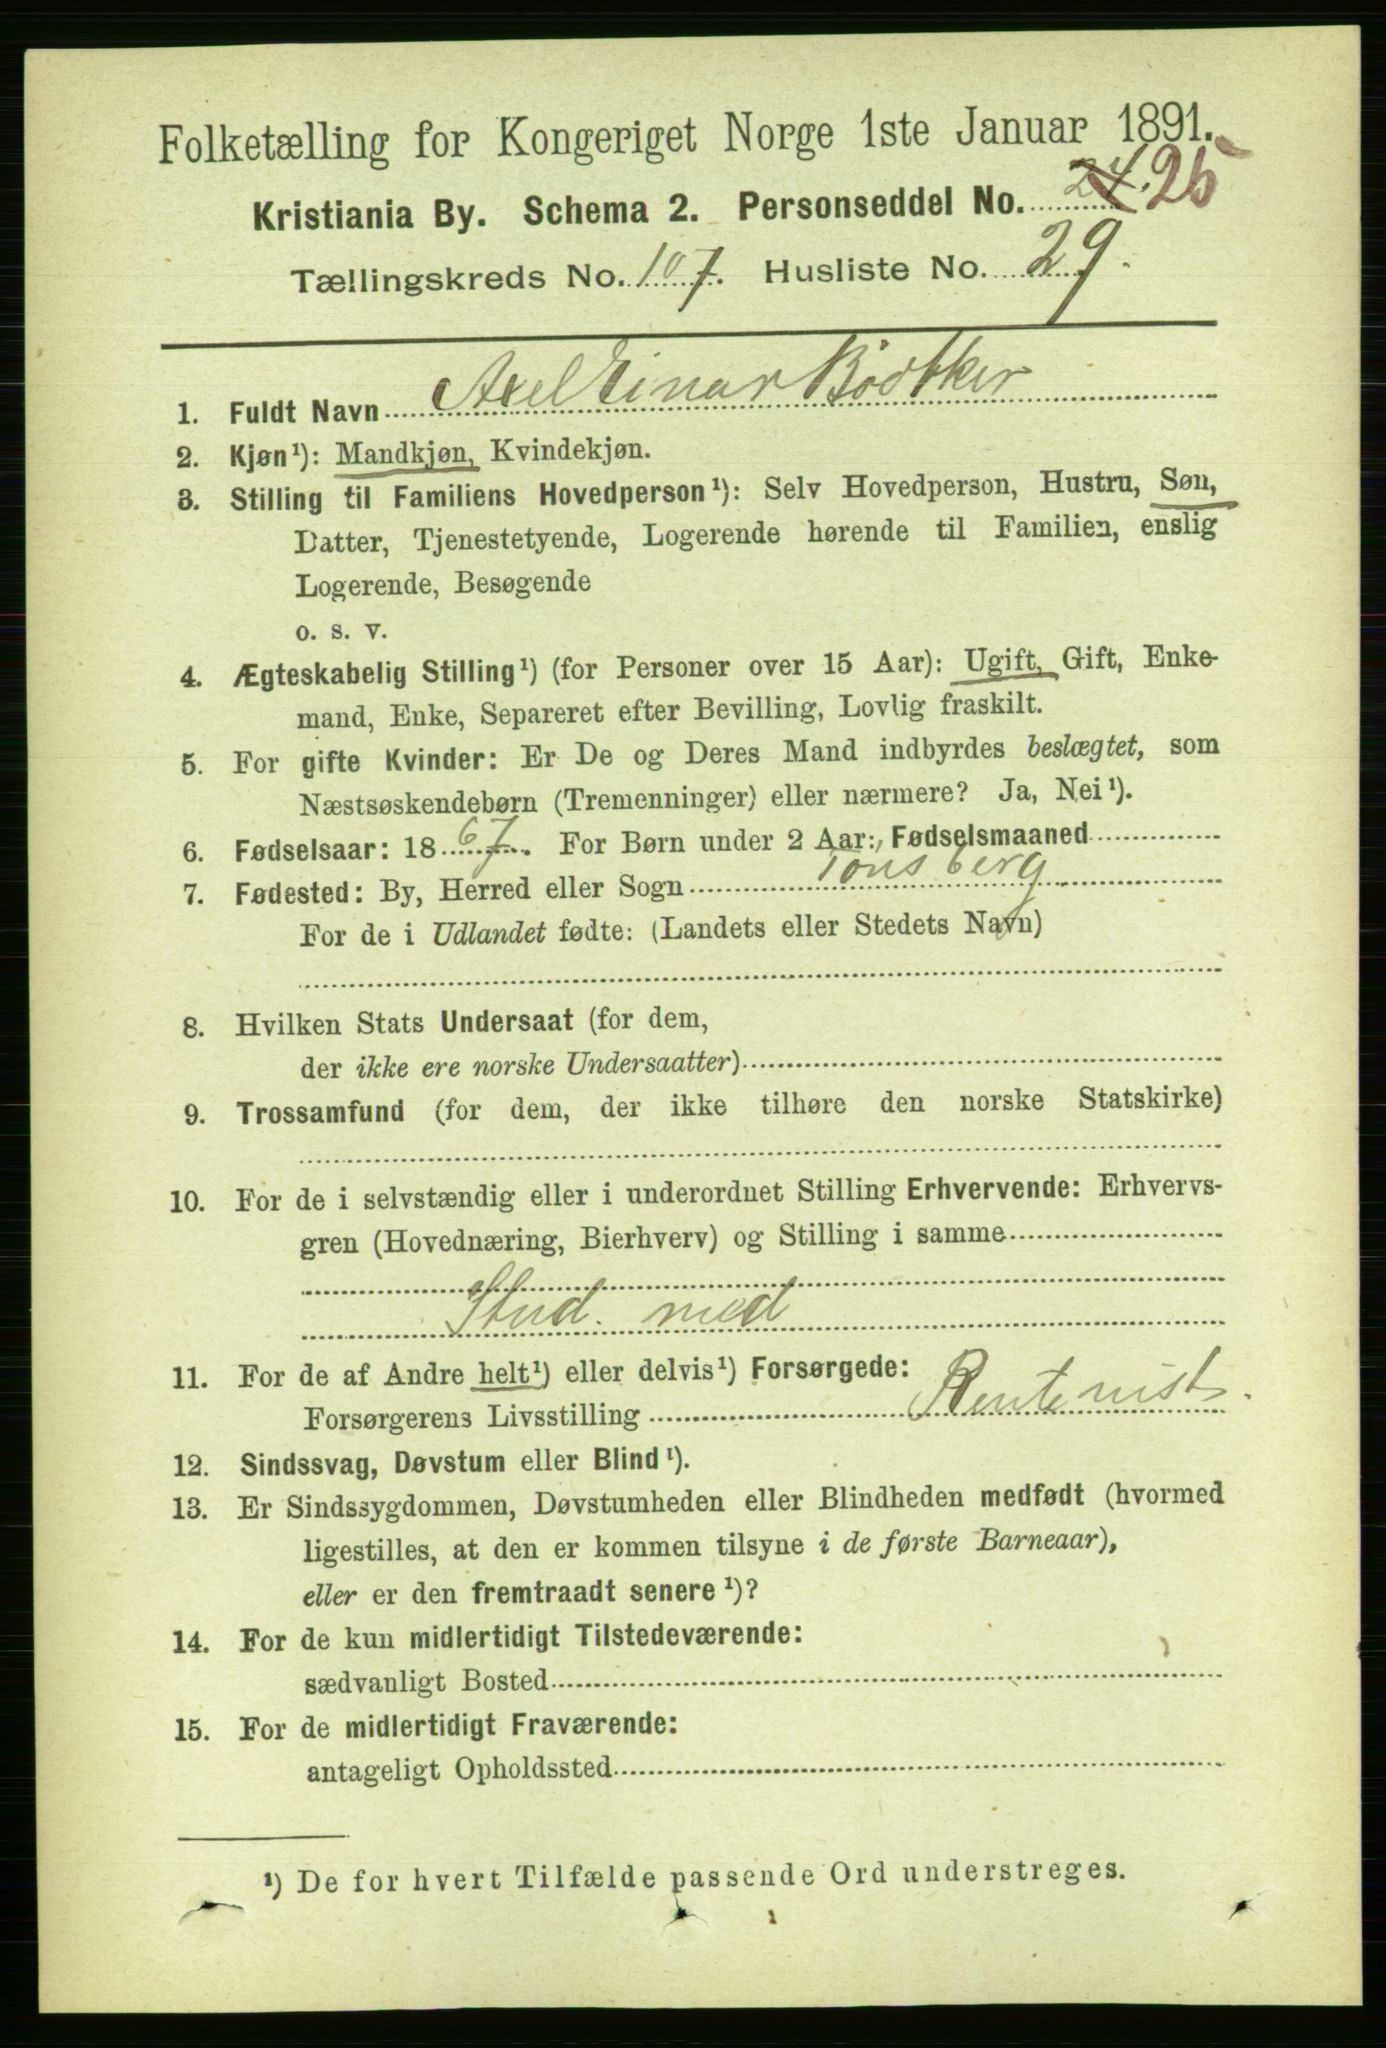 Folketælling for Kongeriget Norge 1ste Januar 1891.
Kristiania By. Schema 2. Personseddel No. 24. 25
Tællingskreds No. 107. Husliste No. 29.
1. Fuldt Navn Axel Einar Bödtker
2. Kjøn¹): Mandkjøn, Kvindekjøn.
3. Stilling til Familiens Hovedperson¹): Selv Hovedperson, Hustru, Søn,
Datter, Tjenestetyende, Logerende hørende til Familien, enslig
Logerende, Besøgende
o. s. v.
4. Ægteskabelig Stilling¹) (for Personer over 15 Aar): Ugift, Gift, Enke-
mand, Enke, Separeret efter Bevilling, Lovlig fraskilt.
5. For gifte Kvinder: Er De og Deres Mand indbyrdes beslægtet, som
Næstsøskendebørn (Tremenninger) eller nærmere? Ja, Nei¹).
6. Fødselsaar: 1867. For Børn under 2 Aar: Fødselsmaaned
7. Fødested: By, Herred eller Sogn Tönsberg
For de i Udlandet fødte: (Landets eller Stedets Navn)
8. Hvilken Stats Undersaat (for dem,
der ikke ere norske Undersaatter)
9. Trossamfund (for dem, der ikke tilhøre den norske Statskirke)
10. For de i selvstændig eller i underordnet Stilling Erhvervende: Erhvervs-
gren (Hovednæring, Bierhverv) og Stilling i samme
Stud. med
11. For de af Andre helt¹) eller delvis¹) Forsørgede:
Forsørgerens Livsstilling Rentenist.
12. Sindssvag, Døvstum eller Blind¹).
13. Er Sindssygdommen, Døvstumheden eller Blindheden medfødt (hvormed
ligestilles, at den er kommen tilsyne i de første Barneaar),
eller er den fremtraadt senere¹)?
14. For de kun midlertidigt Tilstedeværende:
sædvanligt Bosted
15. For de midlertidigt Fraværende:
antageligt Opholdssted
¹) De for hvert Tilfælde passende Ord understreges.